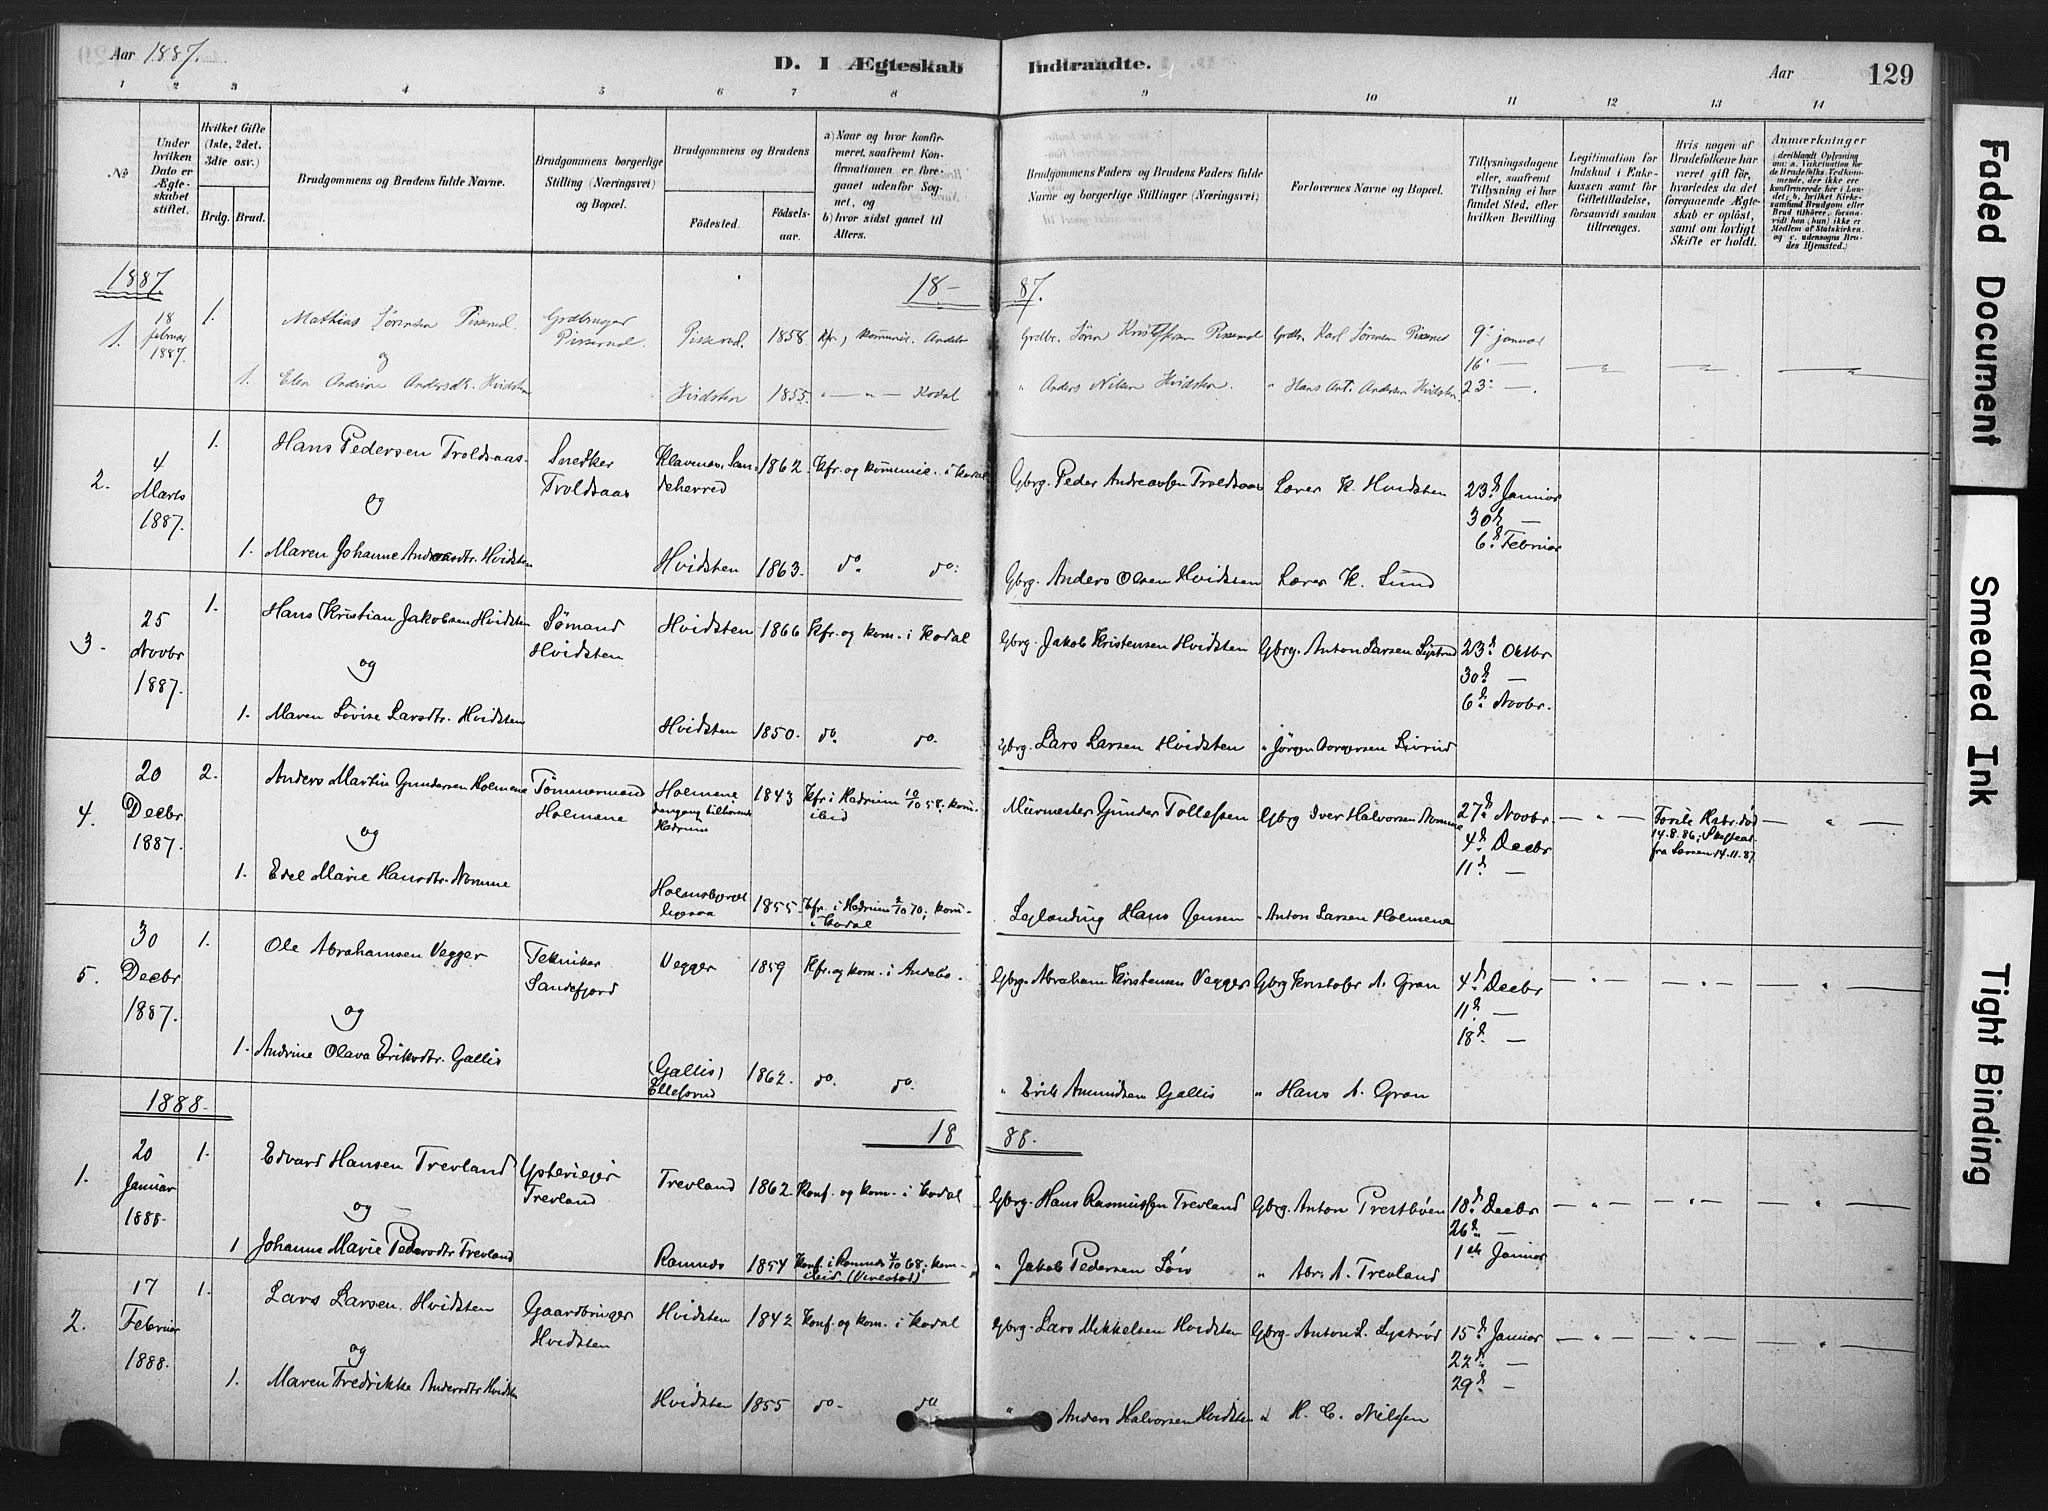 Aar 1887.
D. I Ægteskab Indtraadte.
Aar 129
1 2 3 4 5 6 7 8 9 10 11 12 13 14
No
Under hvilken Dato er Ægteskabet stiftet.
Hvilket Gifte (1ste, 2det, 3die osv.)
Brdg. Brud.
Brudgommens og Brudens fulde Navne.
Brudgommens borgerlige Stilling (Næringsvei) og Bopæl.
Brudgommens og Brudens
Fødested. Fødselsaar.
a) Naar og hvor konfirmeret, saafremt Konfirmationen er foregaaet udenfor Sognet, og
b) hvor sidst gaaet til Alters.
Brudgommens Faders og Brudens Faders fulde Navne og borgerlige Stillinger (Næringsvei)
Forlovernes Navne og Bopæl.
Tillysningsdagene eller, saafremt Tillysning ei har fundet Sted, efter hvilken Bevilling
Legitimation for Indskud i Enkekassen samt for Giftetilladelse, forsaavidt saadan tiltrænges.
Hvis nogen af Brudefolkene har været gift før, hvorledes da det foregaaende Ægteskab er opløst, samt om lovligt Skifte er holdt.
Anmærkninger
(deriblandt Oplysning om: a. Vakcination for de Brudefolks Vedkommende, der ikke ere konfirmerede her i Landet; b. hvilket Kirkesamfund Brudgom eller Brud tilhører, forsaavidt han (hun) ikke er Medlem af Statskirken, og c. udensogns Brudes Hjemsted.)
1887. 18- 87.
1. 18 Februar 1887. 1. Mathias Sørensen Pisserud. Grdbruger Pisserud Pisserud. 1858. Kfr., kommunic. Andebo Grdbr. Søren Kristoffersen Pisserud Grdbr. Karl Sørensen Pisserud 9 januar
og 16 —
1. Elen Andrine Andersdtr. Hvidsten Hvidsten 1855. " — " — Kodal " Anders Nilsen Hvidsten. " Hans Ant. Andersen Hvidsten. 23 — .
2. 4 Marts 1887. 1. Hans Pedersen Troldsaas Snedker Troldsaas Klavenes, Sandeherred 1862 Kfr. og kommunic. i Kodal Gbrg. Peder Andreassen Troldsaas Lærer K. Hvidsten 23d Januar
og 30d —
6d Februar
1. Maren Johanne Andersdtr. Hvidsten Hvidsten 1863. do. do. Gbrg. Anders Olsen Hvidsten Lærer K. Lund
3. 25 Novbr 1887. 1. Hans Kristian Jakobsen Hvidsten Sømand Hvidsten Hvidsten 1866 Kfr. og kom. i Kodal Gbrg. Jakob Kristensen Hvidsten Gbrg. Anton Larsen 23d Oktbr
og 30d —
6d Novbr.
1. Maren Lovise Larsdtr. Hvidsten Hvidsten 1850. do. do. Gbrg. Lars Larsen Hvidsten " Jørgen
4. 20 Decbr 1887. 2. Anders Martin Gundersen Holmene Tømmermand Holmene Holmene dengang tilhørende Hedrum 1843 Kfr. i Hedrum 10/10 58; kom. ibid Murmester Gunder Tollefsen Gbrg Iver Halvorsen Nomme 27d Novbr. — " — Første Hstr. død 14.8.86; Skifteat. fra Larsen 14.11.87. — " —
og 4d Decbr
11d —
1. Edel Marie Hansdtr. Nomme 1855. Kfr. i Hedrum 2/10 70; kom. i Kodal Leilænding Hans Jensen " Anton Larsen Holmene
5. 30 Decbr 1887. 1. Ole Abrahamsen Vegger Tekniker Sandefjord Vegger 1859 Kfr. og kom. i Andebo. Gbrg. Abraham Kristensen Vegger Gbrg Kristofer A. Gran 4d Decbr — " — — " — — " —
og 11d —
18d —
1. Andrine Olava Eriksdtr. Gallis (Gallis) Ellefsrud 1862. do. do. " Erik Amundsen Gallis " Hans A. Gran
1888. 18 88.
1. 20 Januar 1888. 1. Edvard Hansen Trevland Ysterieier Trevland Trevland 1862. Konf. og kom. i Kodal Gbrg. Hans Rasmussen Trevland Gbrg. Anton Prestbøen 18d Decbr — " — — " — — " —
og 26d —
1ste Januar
1. Johanne Marie Pedersdtr Trevland Ramnæs 1854 Konf. i Ramnæs 4/10 68; kom. ibid. " Jakob Pedersen " Abr. A. Trevland
2. 17 Februar 1888. 1. Lars Larsen Hvidsten Gaardbruger Hvidsten Hvidsten 1842 Konf. og kom. i Kodal Gbrg. Lars Mikkelsen Hvidsten Gbrg. Anton L. 15d Januar — " — — " — — " —
og 22d —
29d —
1. Maren Fredrikke Andersdtr Hvidsten Hvidsten 1855 do. do " Anders Halvorsen Hvidsten " H. C. Nielsen
Faded Document
Smeared Ink
Tight Binding